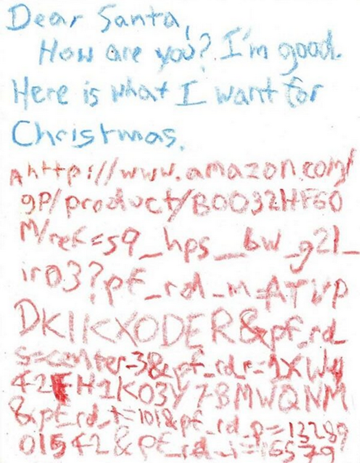 Dear Santa,
How are you? I'm good.
Here is what I want for
Christmas.
http://www.amazon.com/
gp/product/B0032HF60
M/ref=s9_hps_bw_g21_
ir03?pf_rd_m=ATVP
DKIKX0DER&pf_rd_
s=center-3&pf_rd_r=1XW4
42EH1K03Y78MWQNM
&pf_rd_t=101&pf_rd_p=13289
01542&pf_rd_i=16579